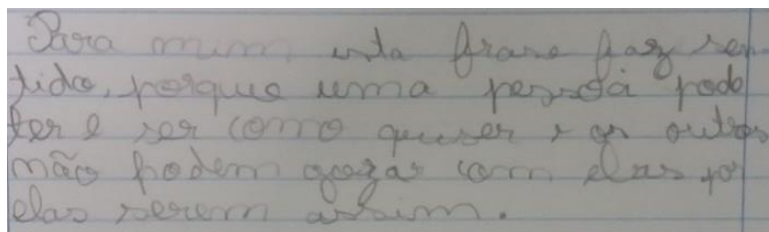 Para mim esta frase faz sen-
tido, porque uma pessoa pode
ter e ser como quiser e os outros
não podem gozar com elas por
elas serem assim.